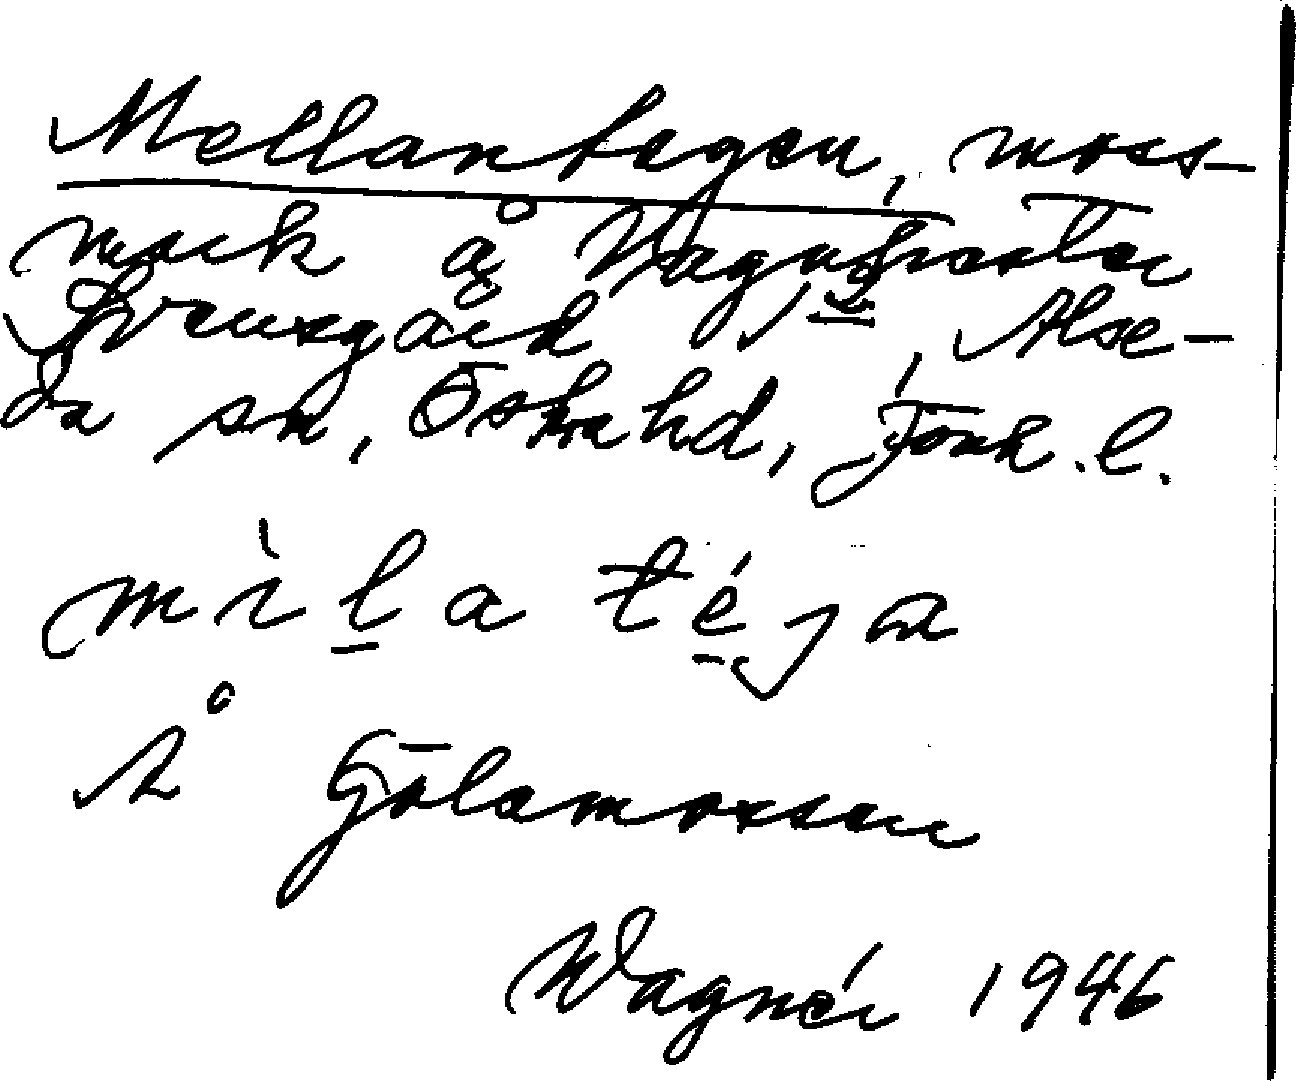 Mellantegen, moss-
mark å Vagnhester
Svensgård, Alse-
da sn, Östra hd, Jönk. l.
mìla téja
Å Gölamossen
Wagnér 1946